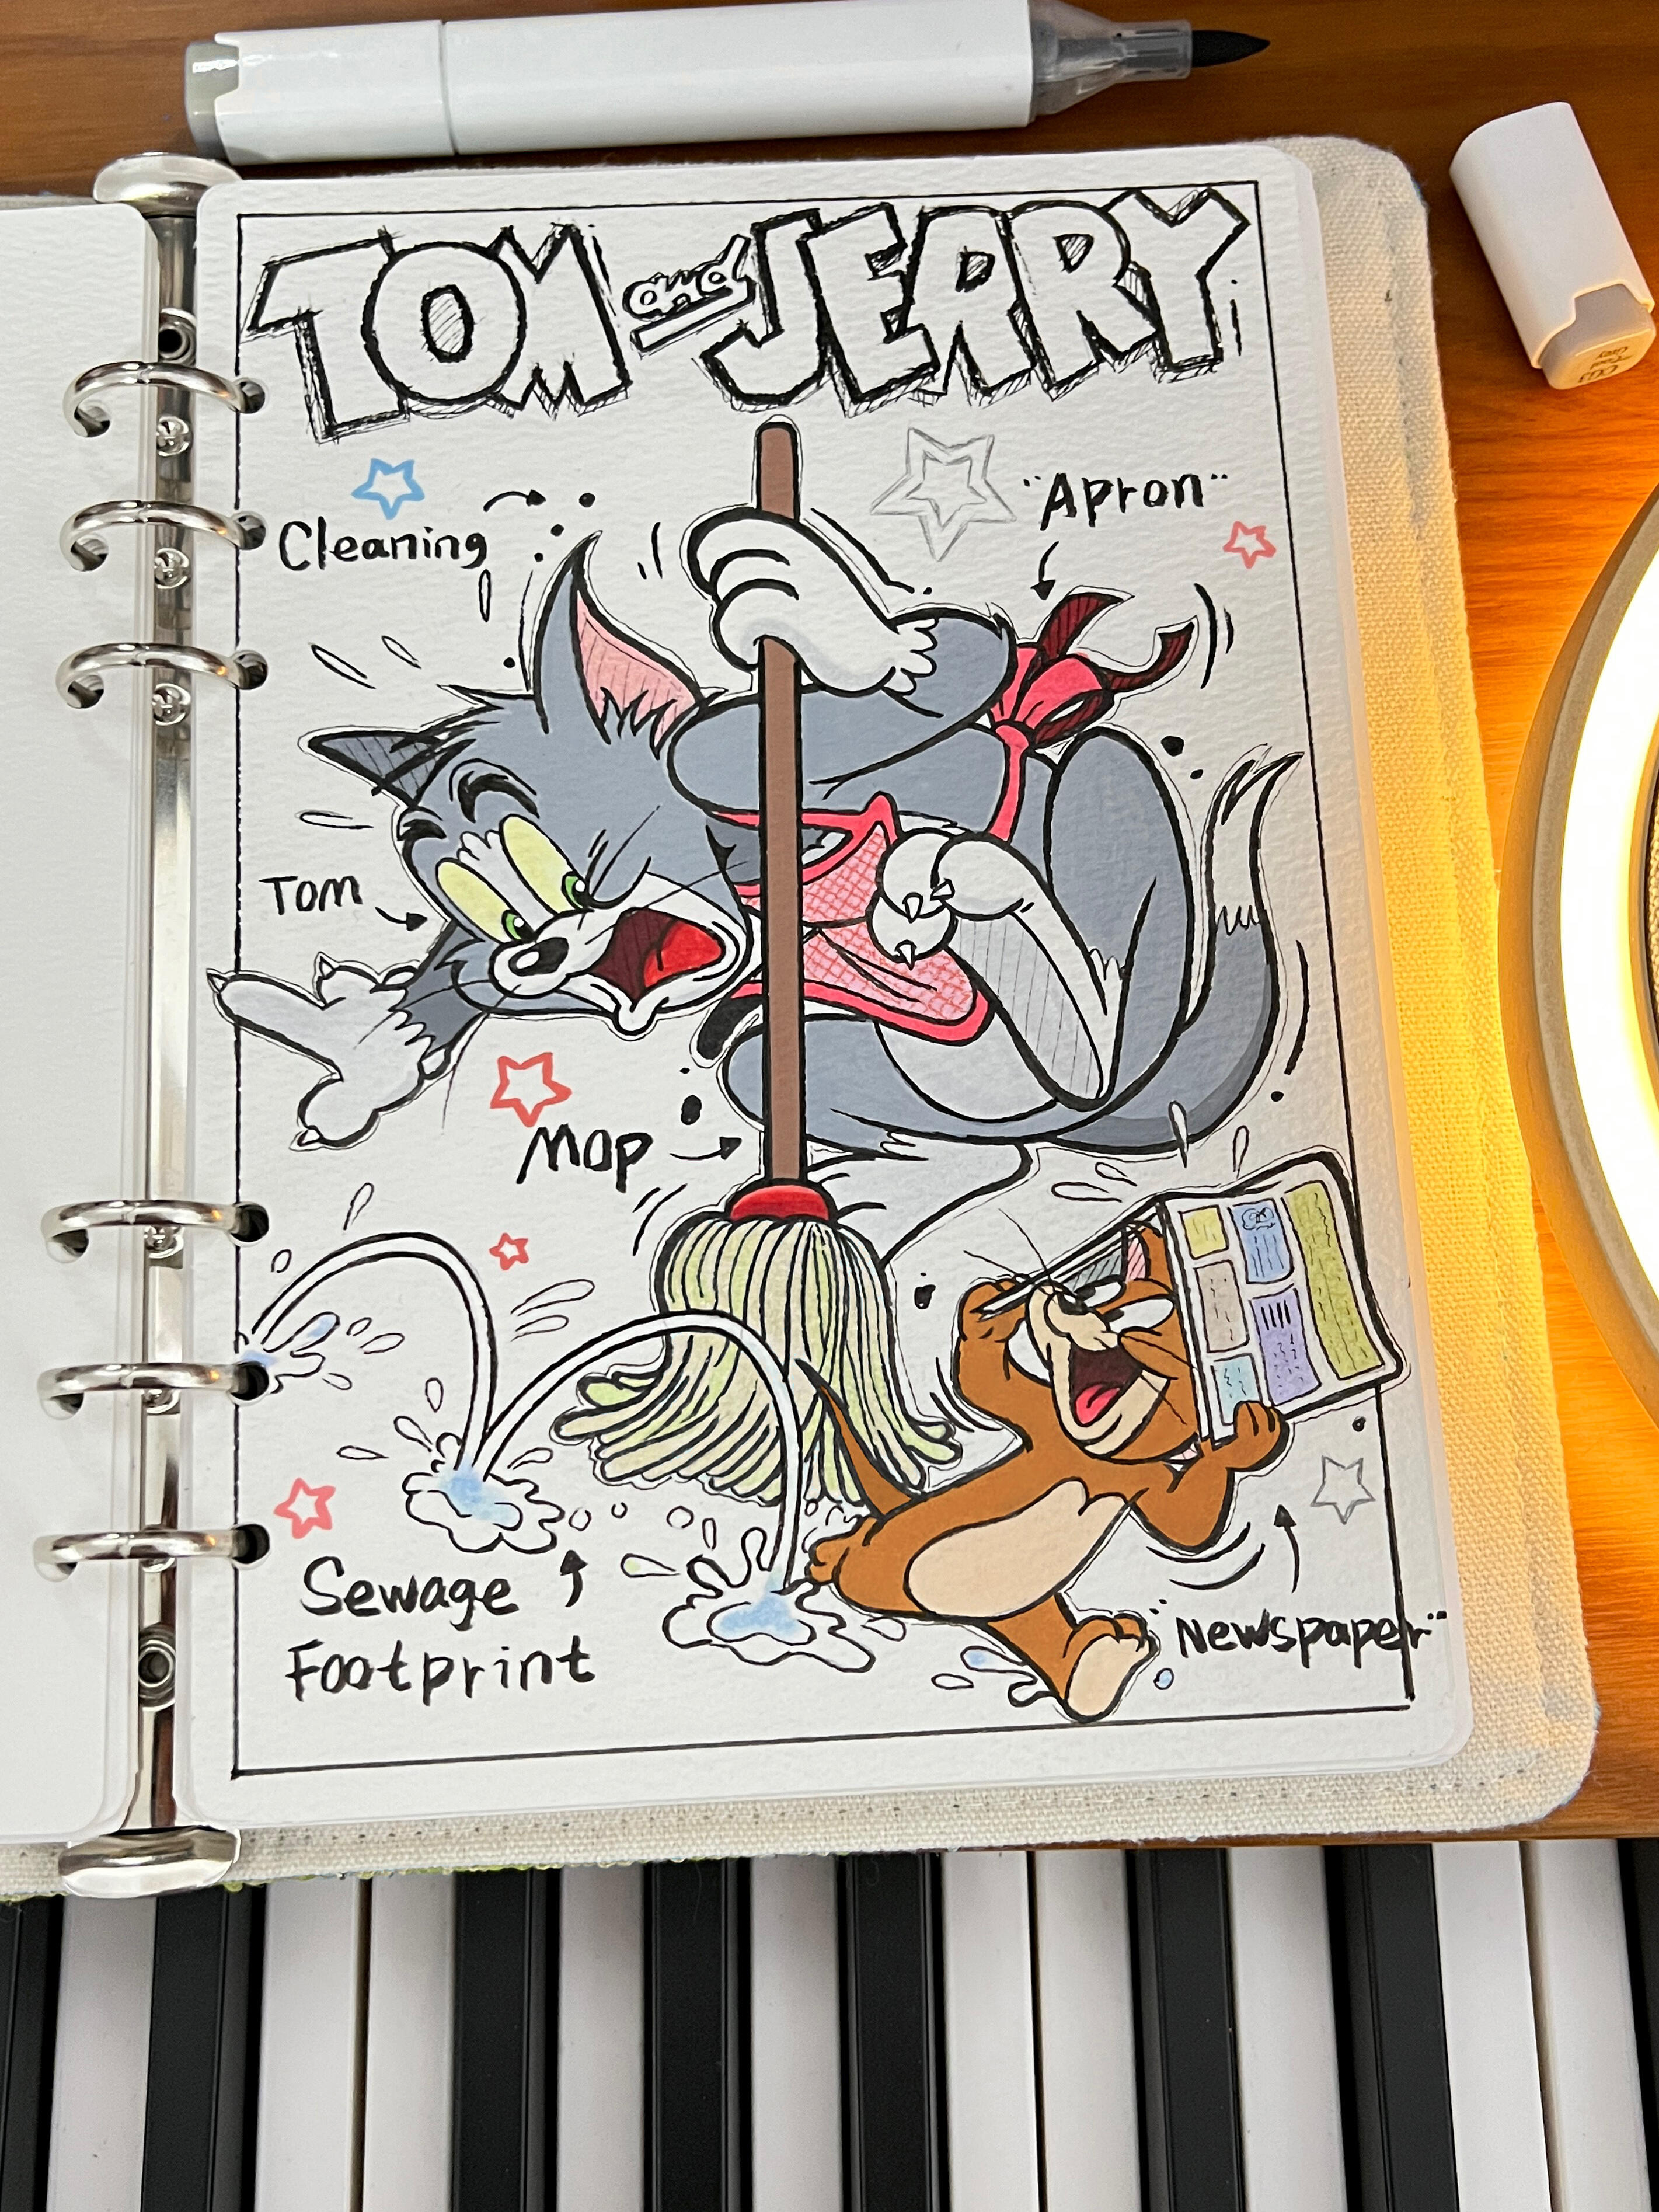 TOM and JERRY
Cleaning
"Apron"
Tom
Mop
Sewage
Footprint
"Newspaper"